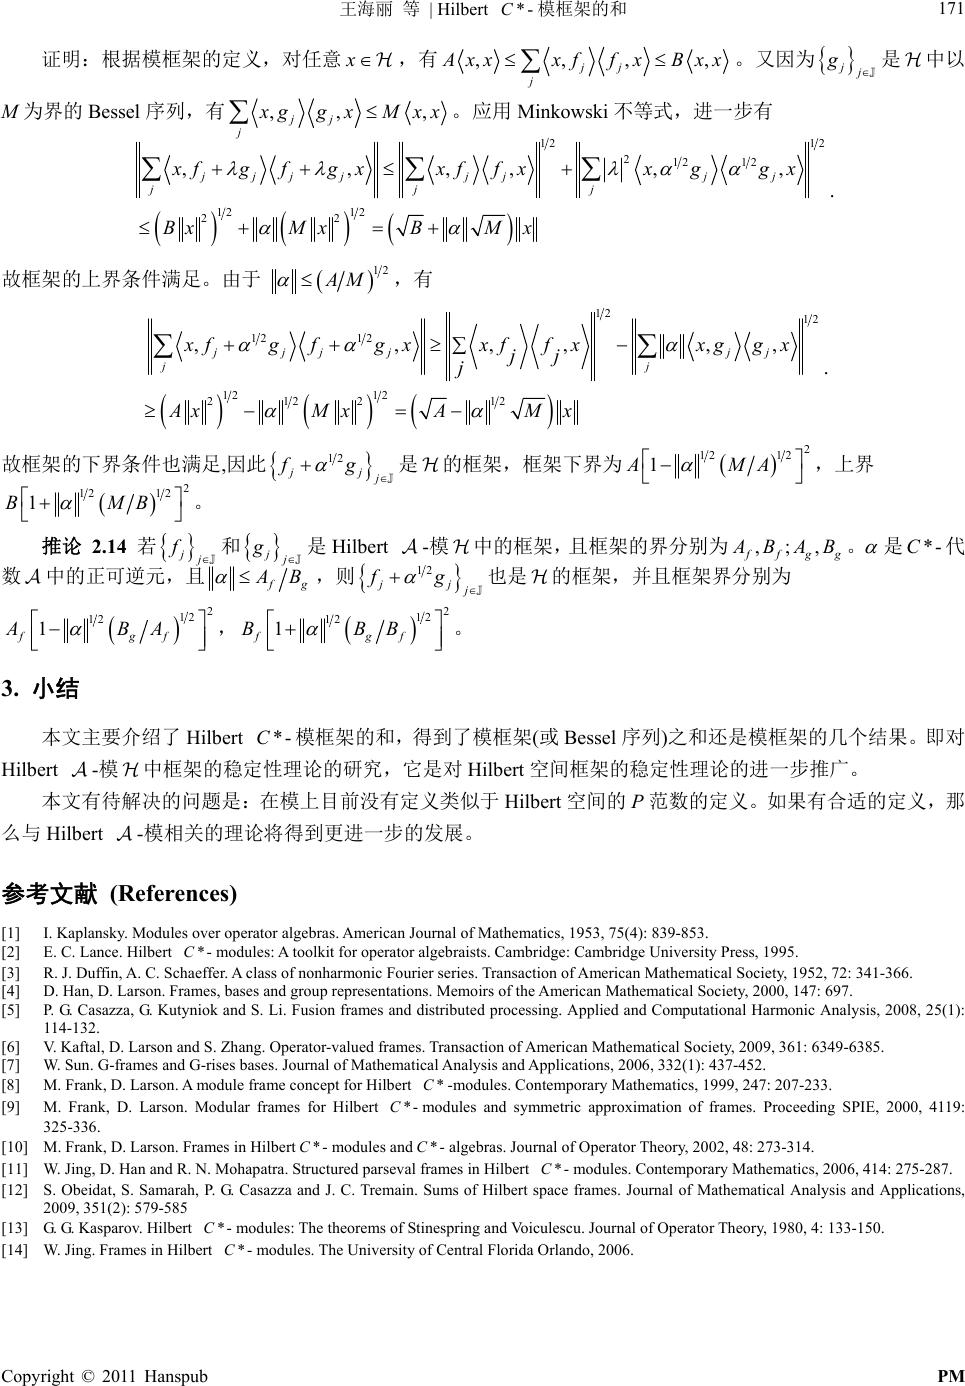 王海丽 等 | Hilbert C*-模框架的和 171
证明：根据模框架的定义，对任意 x∈ℋ，有 A⟨x,x⟩ ≤ ∑_j ⟨x,f_j⟩⟨f_j,x⟩ ≤ B⟨x,x⟩。又因为{g_j}_{j∈𝕁}是ℋ中以
M 为界的 Bessel 序列，有 ∑_j ⟨x,g_j⟩⟨g_j,x⟩ ≤ M⟨x,x⟩。应用 Minkowski 不等式，进一步有
‖∑_j ⟨x,f_j+λg_j⟩⟨f_j+λg_j,x⟩‖ ≤ ‖∑_j ⟨x,f_j⟩⟨f_j,x⟩‖^{1/2} + ‖∑_j |λ|^2 ⟨x,α^{1/2}g_j⟩⟨α^{1/2}g_j,x⟩‖^{1/2}
≤ (B‖x‖^2)^{1/2} + ‖α‖(M‖x‖^2)^{1/2} = (√B+‖α‖√M)‖x‖ .
故框架的上界条件满足。由于 ‖α‖ ≤ (A/M)^{1/2}，有
‖∑_j ⟨x,f_j+α^{1/2}g_j⟩⟨f_j+α^{1/2}g_j,x⟩‖ ≥ ‖∑_j ⟨x,f_j⟩⟨f_j,x⟩‖^{1/2} − ‖∑_j ‖α‖⟨x,g_j⟩⟨g_j,x⟩‖^{1/2}
≥ (A‖x‖^2)^{1/2} − ‖α‖^{1/2}(M‖x‖^2)^{1/2} = (√A−‖α‖^{1/2}√M)‖x‖ .
故框架的下界条件也满足,因此{f_j+α^{1/2}g_j}_{j∈𝕁}是ℋ的框架，框架下界为 A[1−‖α‖^{1/2}(M/A)^{1/2}]^2，上界
B[1+‖α‖^{1/2}(M/B)^{1/2}]^2。
推论 2.14 若{f_j}_{j∈𝕁}和{g_j}_{j∈𝕁}是 Hilbert 𝒜-模ℋ中的框架，且框架的界分别为 A_f,B_f;A_g,B_g。α 是 C*-代
数𝒜中的正可逆元，且‖α‖ ≤ A_f/B_g，则{f_j+α^{1/2}g_j}_{j∈𝕁}也是ℋ的框架，并且框架界分别为
A_f[1−‖α‖^{1/2}(B_g/A_f)^{1/2}]^2，B_f[1+‖α‖^{1/2}(B_g/B_f)^{1/2}]^2。
3. 小结
本文主要介绍了 Hilbert C*-模框架的和，得到了模框架(或 Bessel 序列)之和还是模框架的几个结果。即对
Hilbert 𝒜-模ℋ中框架的稳定性理论的研究，它是对 Hilbert 空间框架的稳定性理论的进一步推广。
本文有待解决的问题是：在模上目前没有定义类似于 Hilbert 空间的 P 范数的定义。如果有合适的定义，那
么与 Hilbert 𝒜-模相关的理论将得到更进一步的发展。
参考文献 (References)
[1] I. Kaplansky. Modules over operator algebras. American Journal of Mathematics, 1953, 75(4): 839-853.
[2] E. C. Lance. Hilbert C*- modules: A toolkit for operator algebraists. Cambridge: Cambridge University Press, 1995.
[3] R. J. Duffin, A. C. Schaeffer. A class of nonharmonic Fourier series. Transaction of American Mathematical Society, 1952, 72: 341-366.
[4] D. Han, D. Larson. Frames, bases and group representations. Memoirs of the American Mathematical Society, 2000, 147: 697.
[5] P. G. Casazza, G. Kutyniok and S. Li. Fusion frames and distributed processing. Applied and Computational Harmonic Analysis, 2008, 25(1):
114-132.
[6] V. Kaftal, D. Larson and S. Zhang. Operator-valued frames. Transaction of American Mathematical Society, 2009, 361: 6349-6385.
[7] W. Sun. G-frames and G-rises bases. Journal of Mathematical Analysis and Applications, 2006, 332(1): 437-452.
[8] M. Frank, D. Larson. A module frame concept for Hilbert C* -modules. Contemporary Mathematics, 1999, 247: 207-233.
[9] M. Frank, D. Larson. Modular frames for Hilbert C*- modules and symmetric approximation of frames. Proceeding SPIE, 2000, 4119:
325-336.
[10] M. Frank, D. Larson. Frames in Hilbert C*- modules and C*- algebras. Journal of Operator Theory, 2002, 48: 273-314.
[11] W. Jing, D. Han and R. N. Mohapatra. Structured parseval frames in Hilbert C*- modules. Contemporary Mathematics, 2006, 414: 275-287.
[12] S. Obeidat, S. Samarah, P. G. Casazza and J. C. Tremain. Sums of Hilbert space frames. Journal of Mathematical Analysis and Applications,
2009, 351(2): 579-585
[13] G. G. Kasparov. Hilbert C*- modules: The theorems of Stinespring and Voiculescu. Journal of Operator Theory, 1980, 4: 133-150.
[14] W. Jing. Frames in Hilbert C*- modules. The University of Central Florida Orlando, 2006.
Copyright © 2011 Hanspub PM